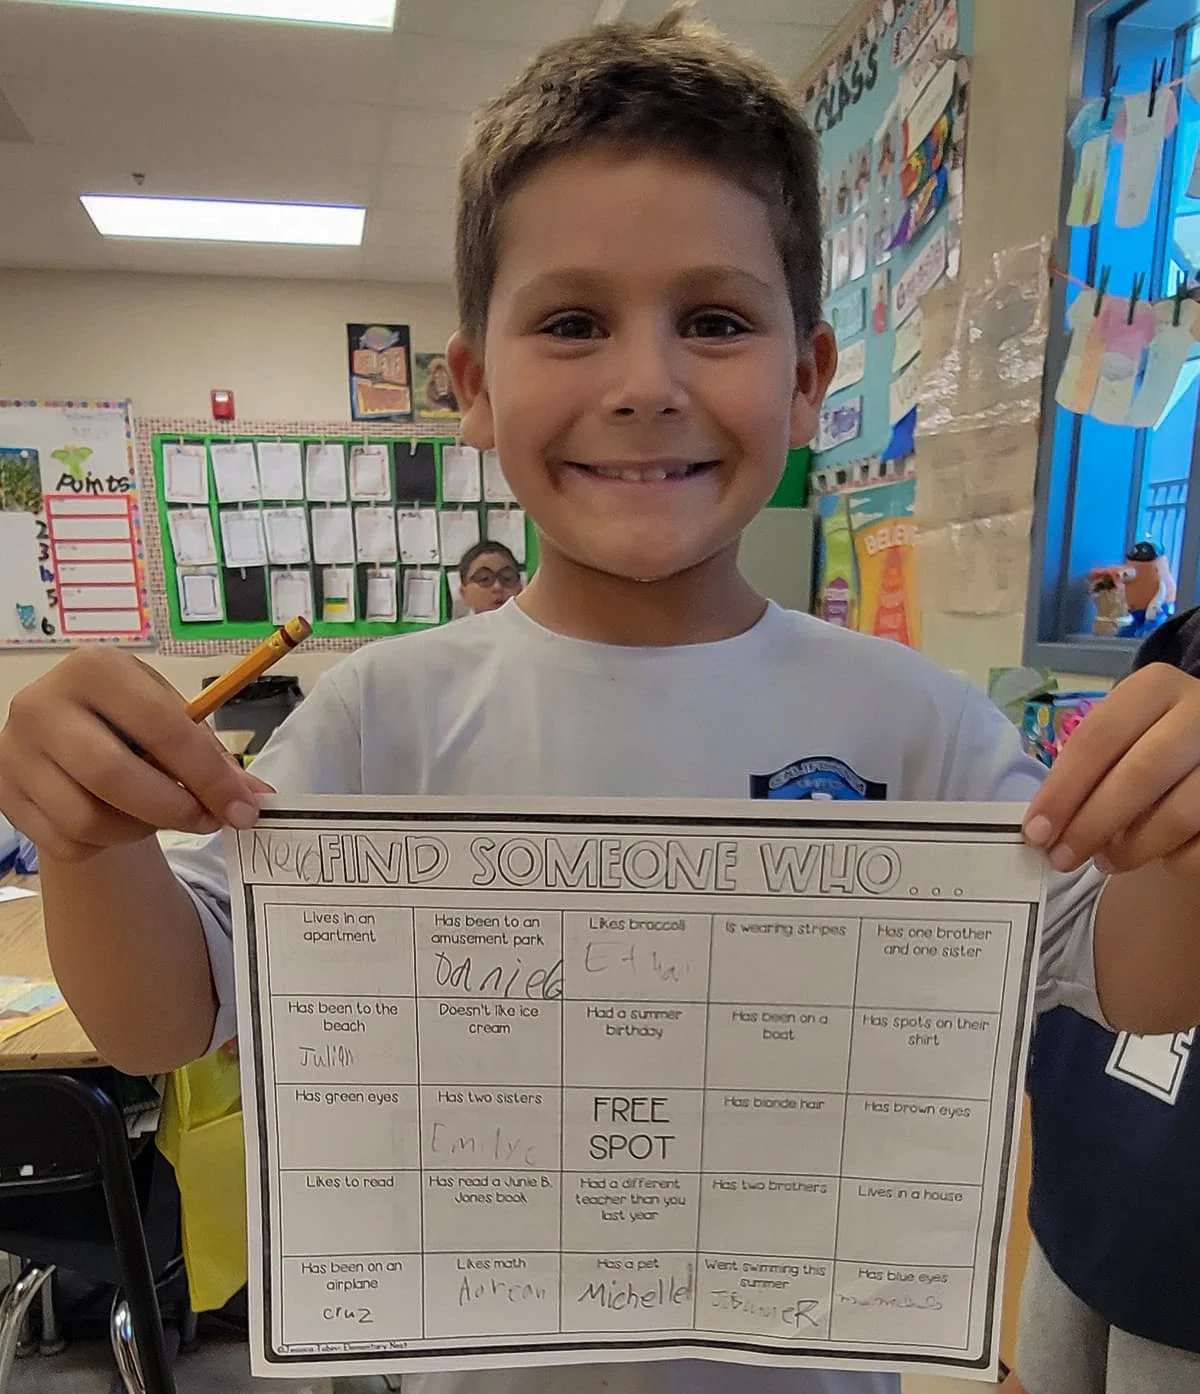 CLASS
Points
2
3
4
5
6
BELIEVE
CALIFORNIA
FIND SOMEONE WHO...
Lives in an
apartment
Has been to an
amusement park
Daniela
Likes broccoli
Is wearing stripes
Has one brother
and one sister
Has been to the
beach
Julian
Doesn't like ice
cream
Had a summer
birthday
Has been on a
boat
Has spots on their
shirt
Has green eyes
Has two sisters
Emilyc
FREE
SPOT
Has blonde hair
Has brown eyes
Likes to read
Has read a Junie B.
Jones book
Had a different
teacher than you
last year
Has two brothers
Lives in a house
Has been on an
airplane
cruz
Likes math
Has a pet
Michelle
Went swimming this
summer
Has blue eyes
©Jessica Tobin- Elementary Nest